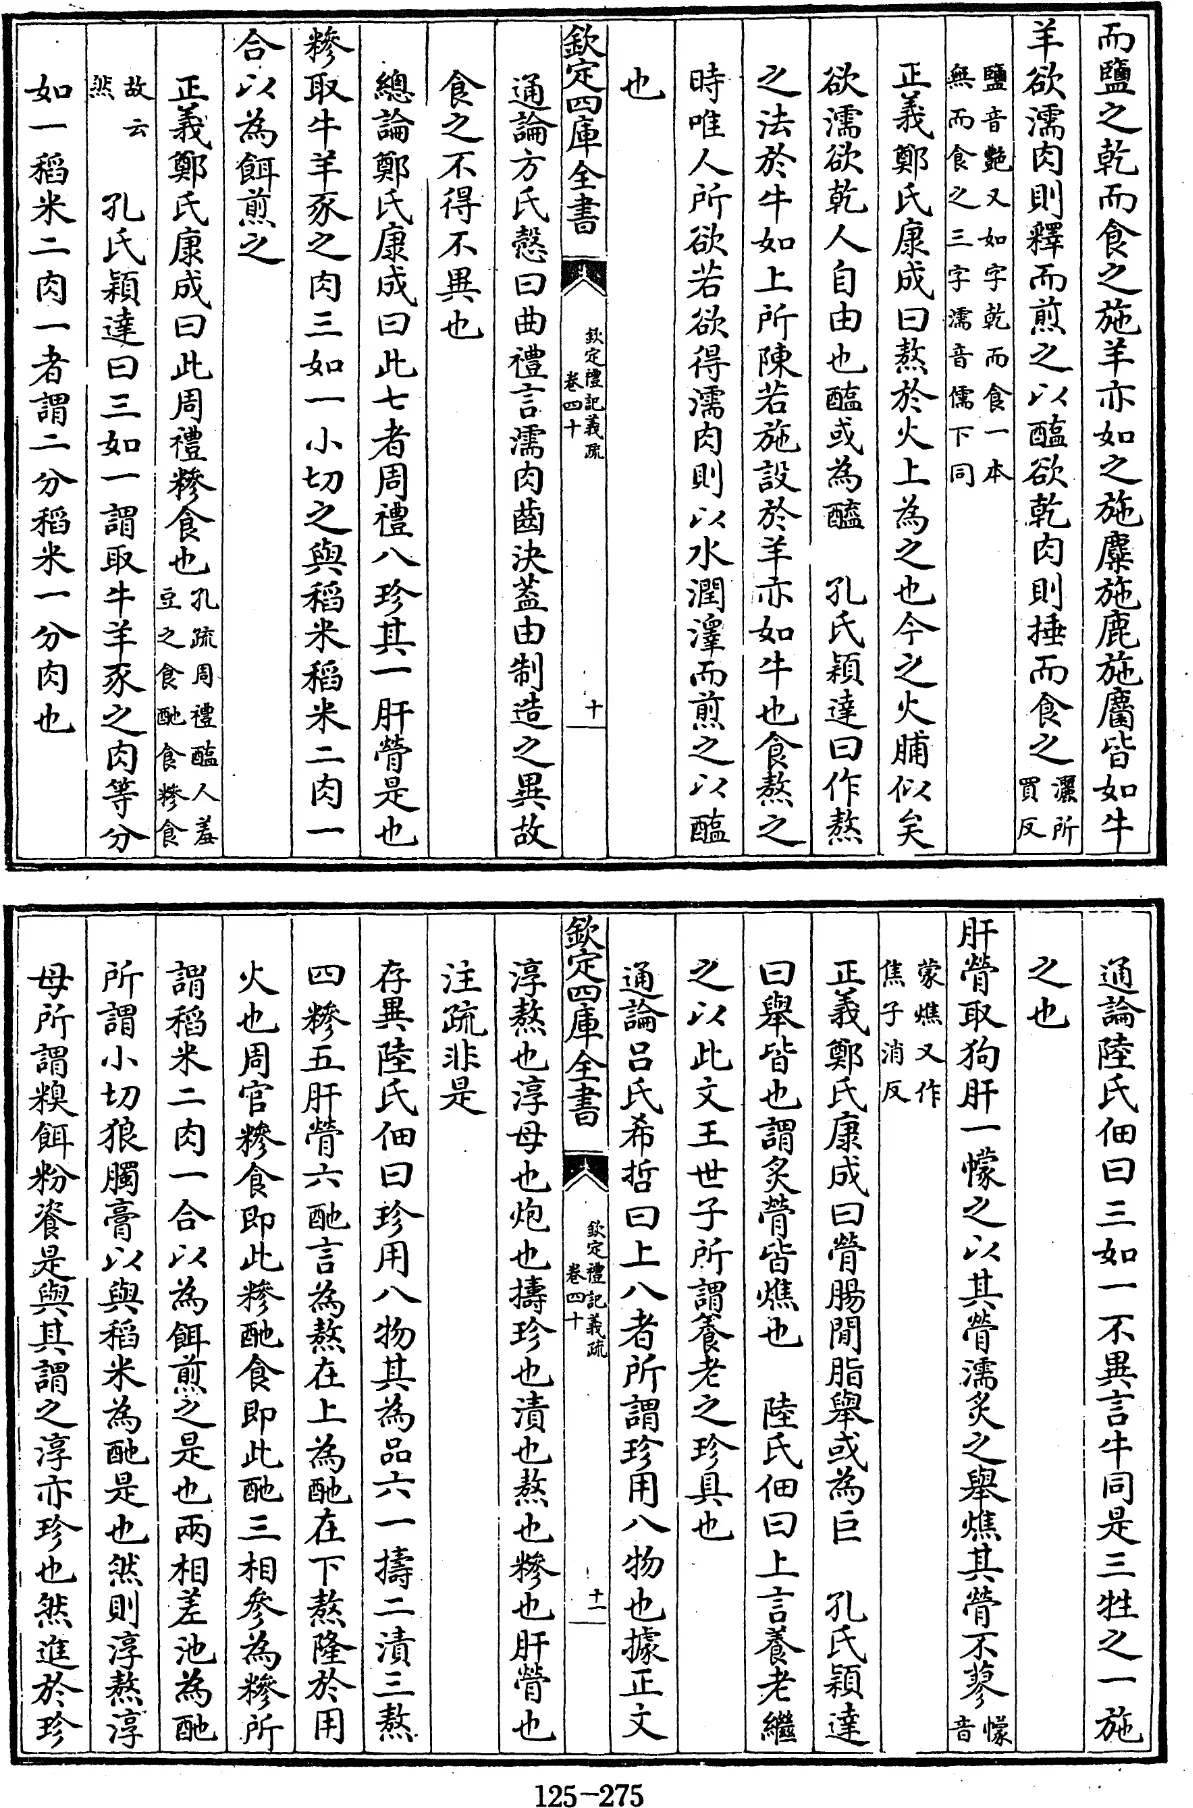 而鹽之乾而食之施羊亦如之施麋施鹿施麕皆如牛
羊欲濡肉則釋而煎之以醢欲乾肉則捶而食之灑所買反
鹽音艶又如字乾而食一本無而食之三字濡音儒下同
正義鄭氏康成曰熬於火上為之也今之火脯似矣
欲濡欲乾人自由也醢或為醯　孔氏穎達曰作熬
之法於牛如上所陳若施設於羊亦如牛也食熬之
時唯人所欲若欲得濡肉則以水潤澤而煎之以醢
也
欽定四庫全書
欽定禮記義疏
卷四十
十
通論方氏慤曰曲禮言濡肉齒決蓋由制造之異故
食之不得不異也
總論鄭氏康成曰此七者周禮八珍其一肝膋是也
糝取牛羊豕之肉三如一小切之與稻米稻米二肉一
合以為餌煎之
正義鄭氏康成曰此周禮糝食也孔疏周禮醢人羞豆之食酏食糝食
故云然　孔氏穎達曰三如一謂取牛羊豕之肉等分
如一稻米二肉一者謂二分稻米一分肉也
通論陸氏佃曰三如一不異言牛同是三牲之一施
之也
肝膋取狗肝一幪之以其膋濡炙之舉燋其膋不蓼幪音
蒙燋又作焦子消反
正義鄭氏康成曰膋腸間脂舉或為巨　孔氏穎達
曰舉皆也謂炙膋皆燋也　陸氏佃曰上言養老繼
之以此文王世子所謂養老之珍具也
通論呂氏希哲曰上八者所謂珍用八物也據正文
欽定四庫全書
欽定禮記義疏
卷四十
十一
淳熬也淳母也炮也擣珍也漬也熬也糝也肝膋也
注疏非是
存異陸氏佃曰珍用八物其為品六一擣二漬三熬
四糝五肝膋六酏言為熬在上為酏在下熬隆於用
火也周官糝食即此糝酏食即此酏三相參為糝所
謂稻米二肉一合以為餌煎之是也兩相差池為酏
所謂小切狼臅膏以與稻米為酏是也然則淳熬淳
母所謂糗餌粉餈是與其謂之淳亦珍也然進於珍
125-275